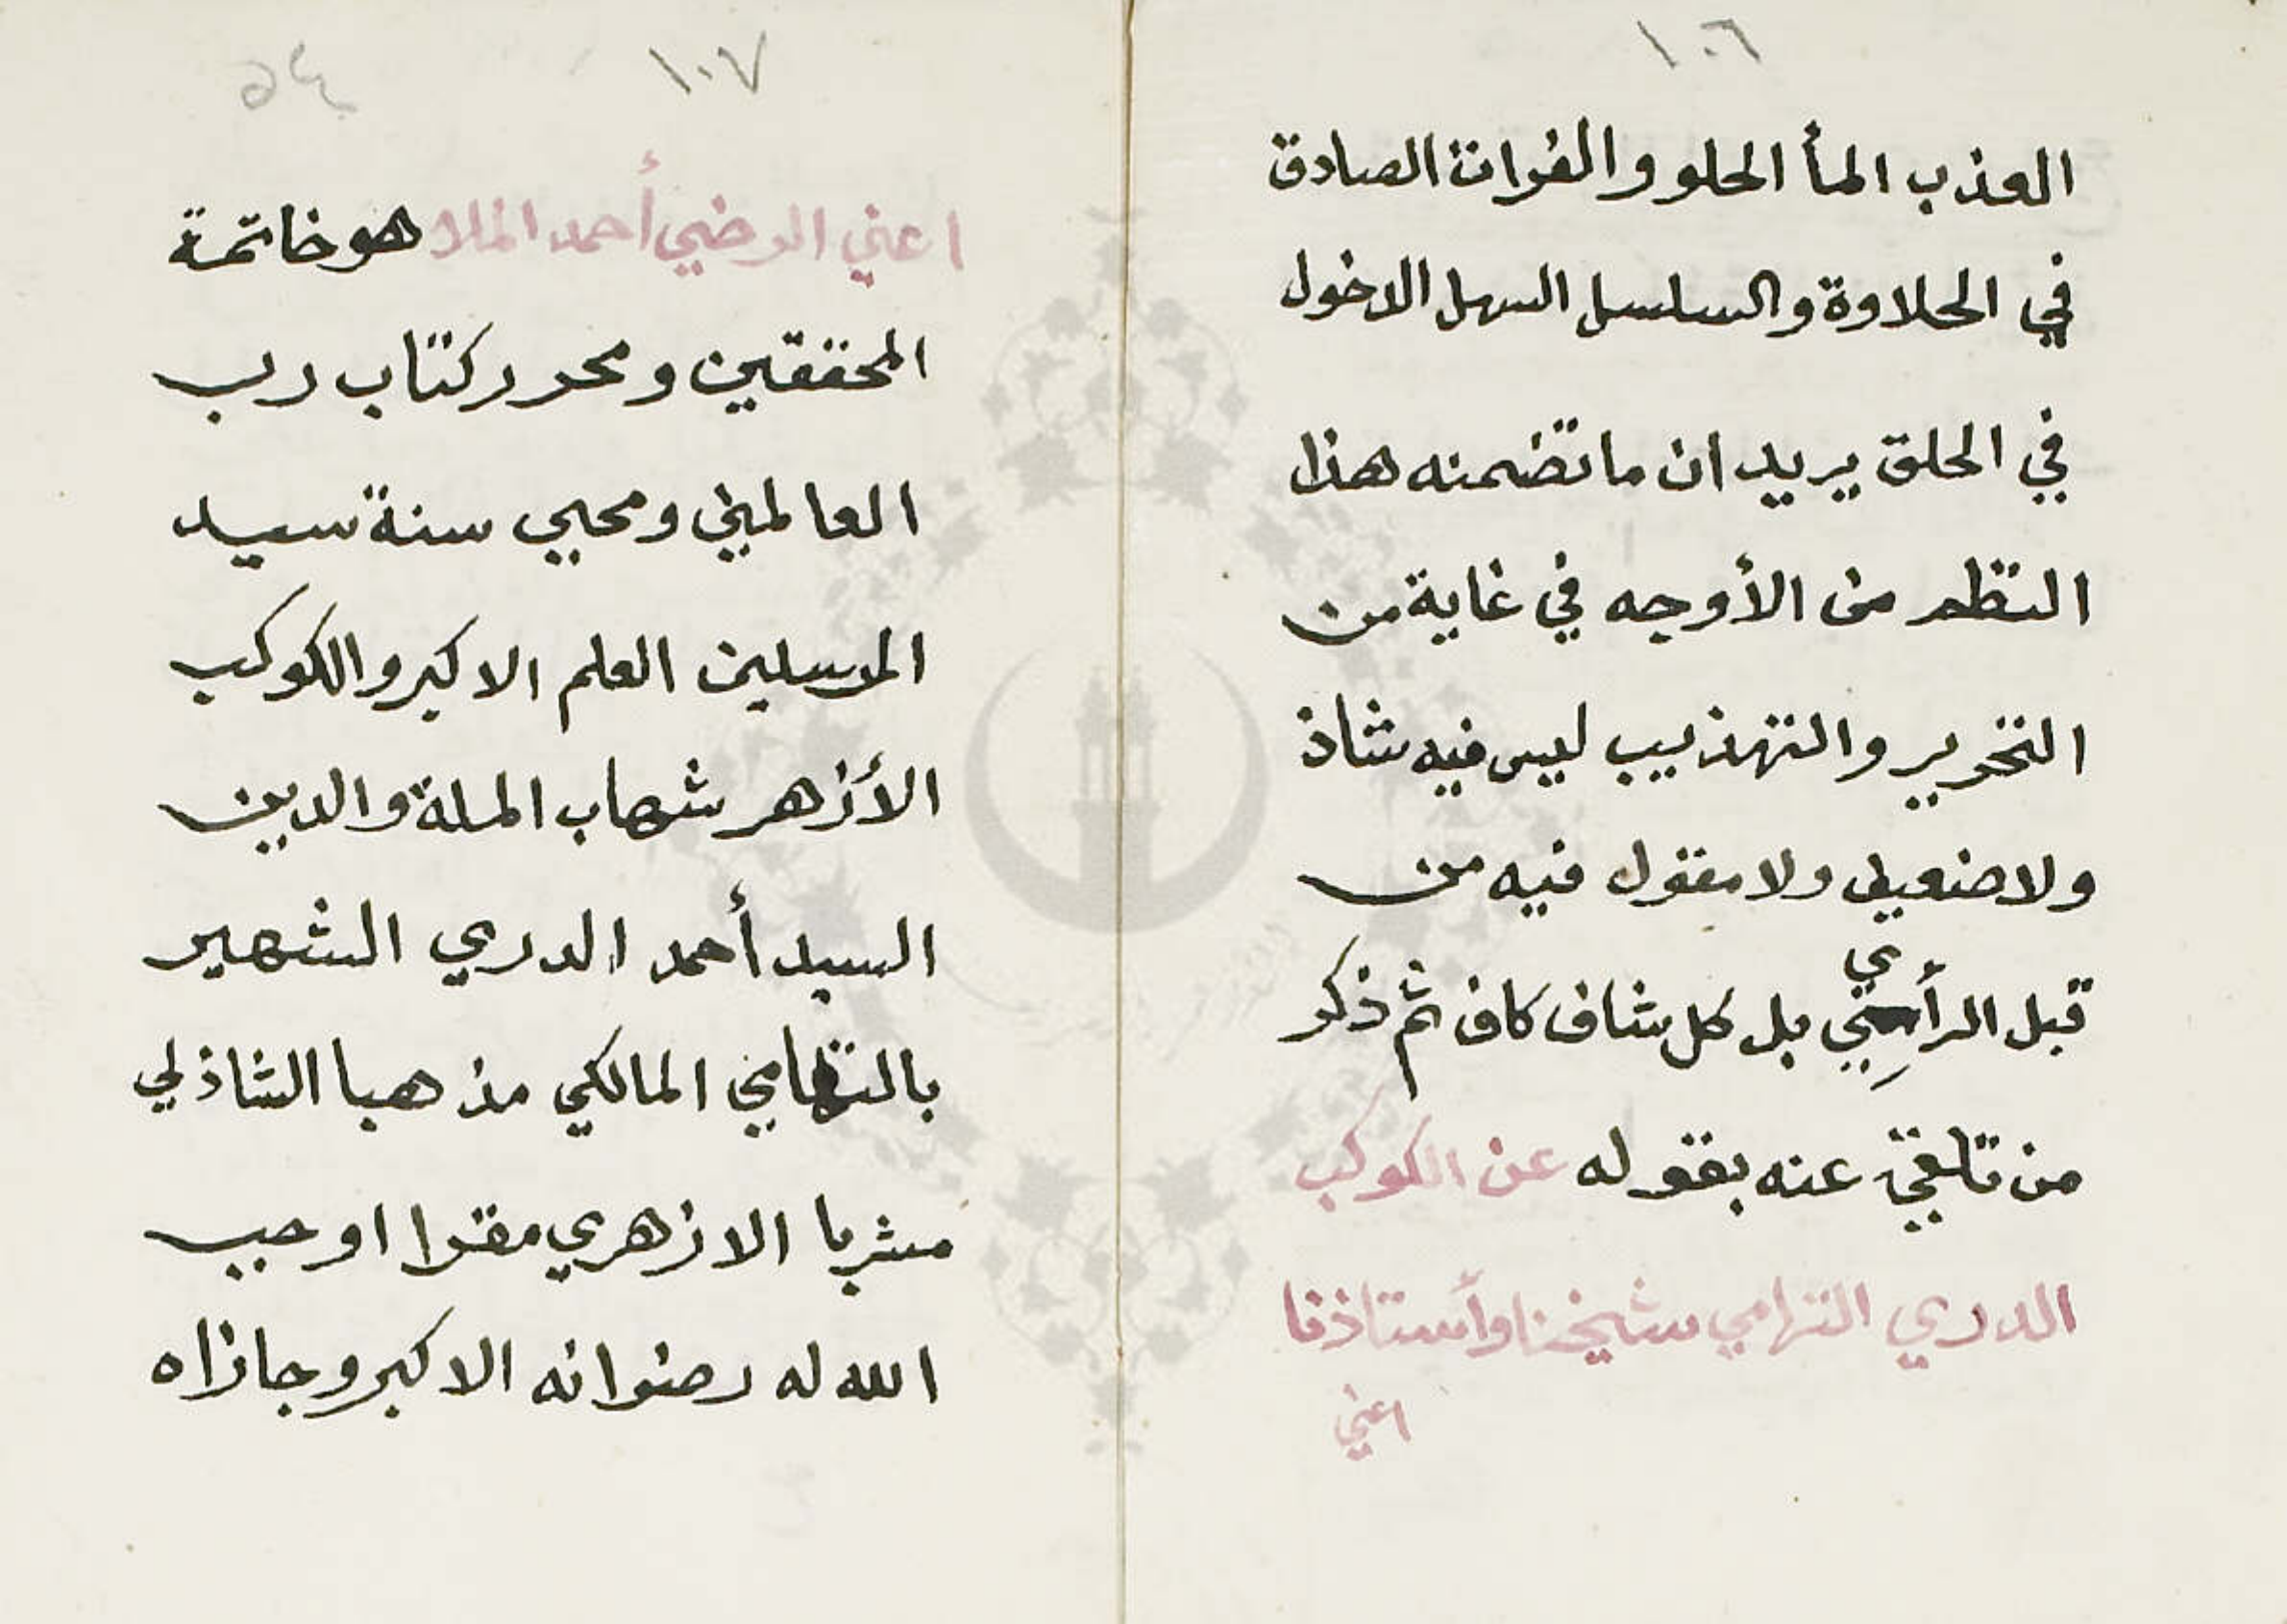 ١٠٦
العذب المأ الحلو والفرات الصادق
في الحلاوة والسلسل السهل الدخول
في الحلق يريد ان ما تضمنه هذا
النظم من الأوجه في غاية من
التحرير والتهذيب ليس فيه شاذ
ولا ضعيف ولا مقول فيه من
قبل الرأي بل كل شاف كاف ثم ذكر
من تلقي عنه بقوله عن الكوكب
الدري التهامي شيخنا وأستاذنا
اعني
١٠٧
٥٤
اعني الرضي أحمد الملا هو خاتمة
المحققين ومحرر كتاب رب
العالمين ومحيي سنة سيد
المرسلين العلم الاكبر والكوكب
الأزهر شهاب الملة والدين
السيد أحمد الدري الشهير
بالتهامي المالكي مذهبا الشاذلي
مشربا الازهري مقرا اوجب
الله له رضوانه الاكبر وجازاه